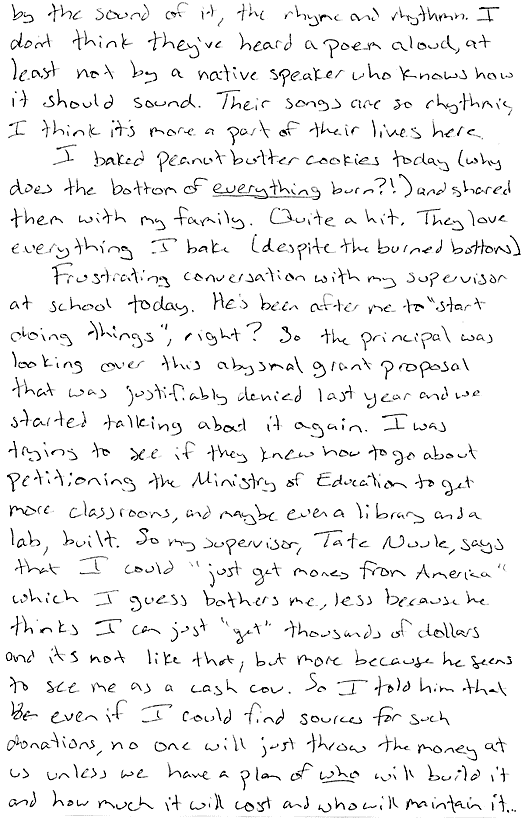 by the sound of it, the rhyme and rhythmn. I
dont think they've heard a poem aloud, at
least not by a native speaker who knows how
it should sound. Their songs are so rhythmic,
I think it's more a part of their lives here.
I baked peanut butter cookies today (why
does the bottom of everything burn?!) and shared
them with my family. Quite a hit. They love
everything I bake (despite the burned bottoms)
Frustrating conversation with my supervisor
at school today. He's been after me to "start
doing things", right? So the principal was
looking over this abysmal grant proposal
that was justifiably denied last year and we
started talking about it again. I was
trying to see if they knew how to go about
petitioning the Ministry of Education to get
more classrooms, and maybe even a library and a
lab, built. So my supervisor, Tate Nuule, says
that I could "just get money from America"
which I guess bothers me, less because he
thinks I can just "get" thousands of dollars
and it's not like that, but more because he seems
to see me as a cash cow. So I told him that
even if I could find sources for such
donations, no one will just throw the money at
us unless we have a plan of who will build it
and how much it will cost and who will maintain it...